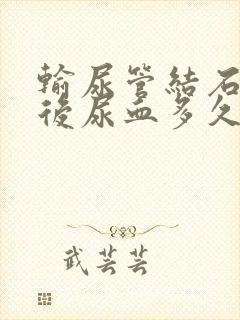 輸尿管結石
後尿血多久
武芸芸